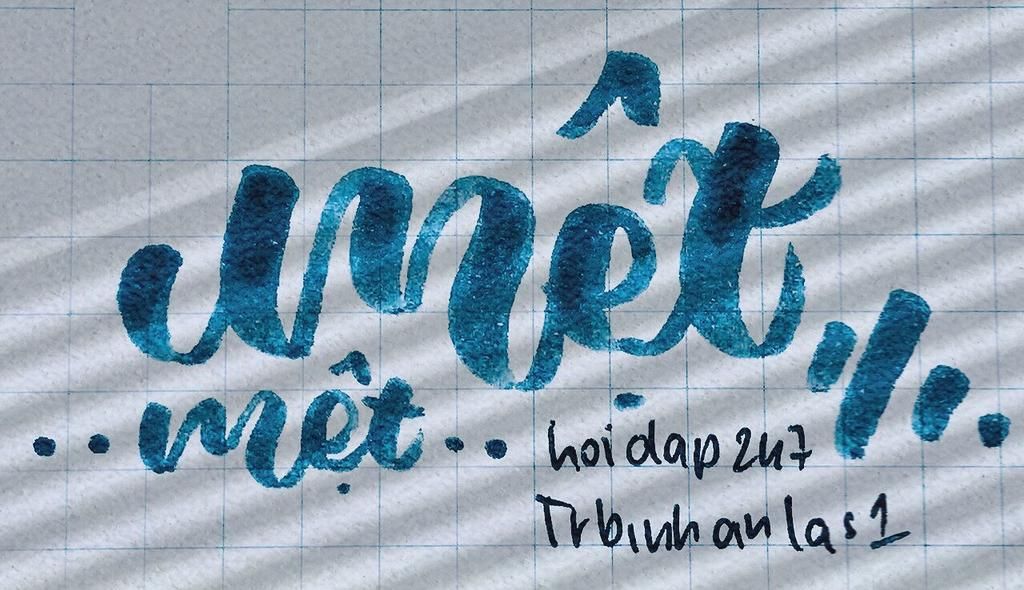 mệt
..mệt..
hoidap247
Trbinhanlas1